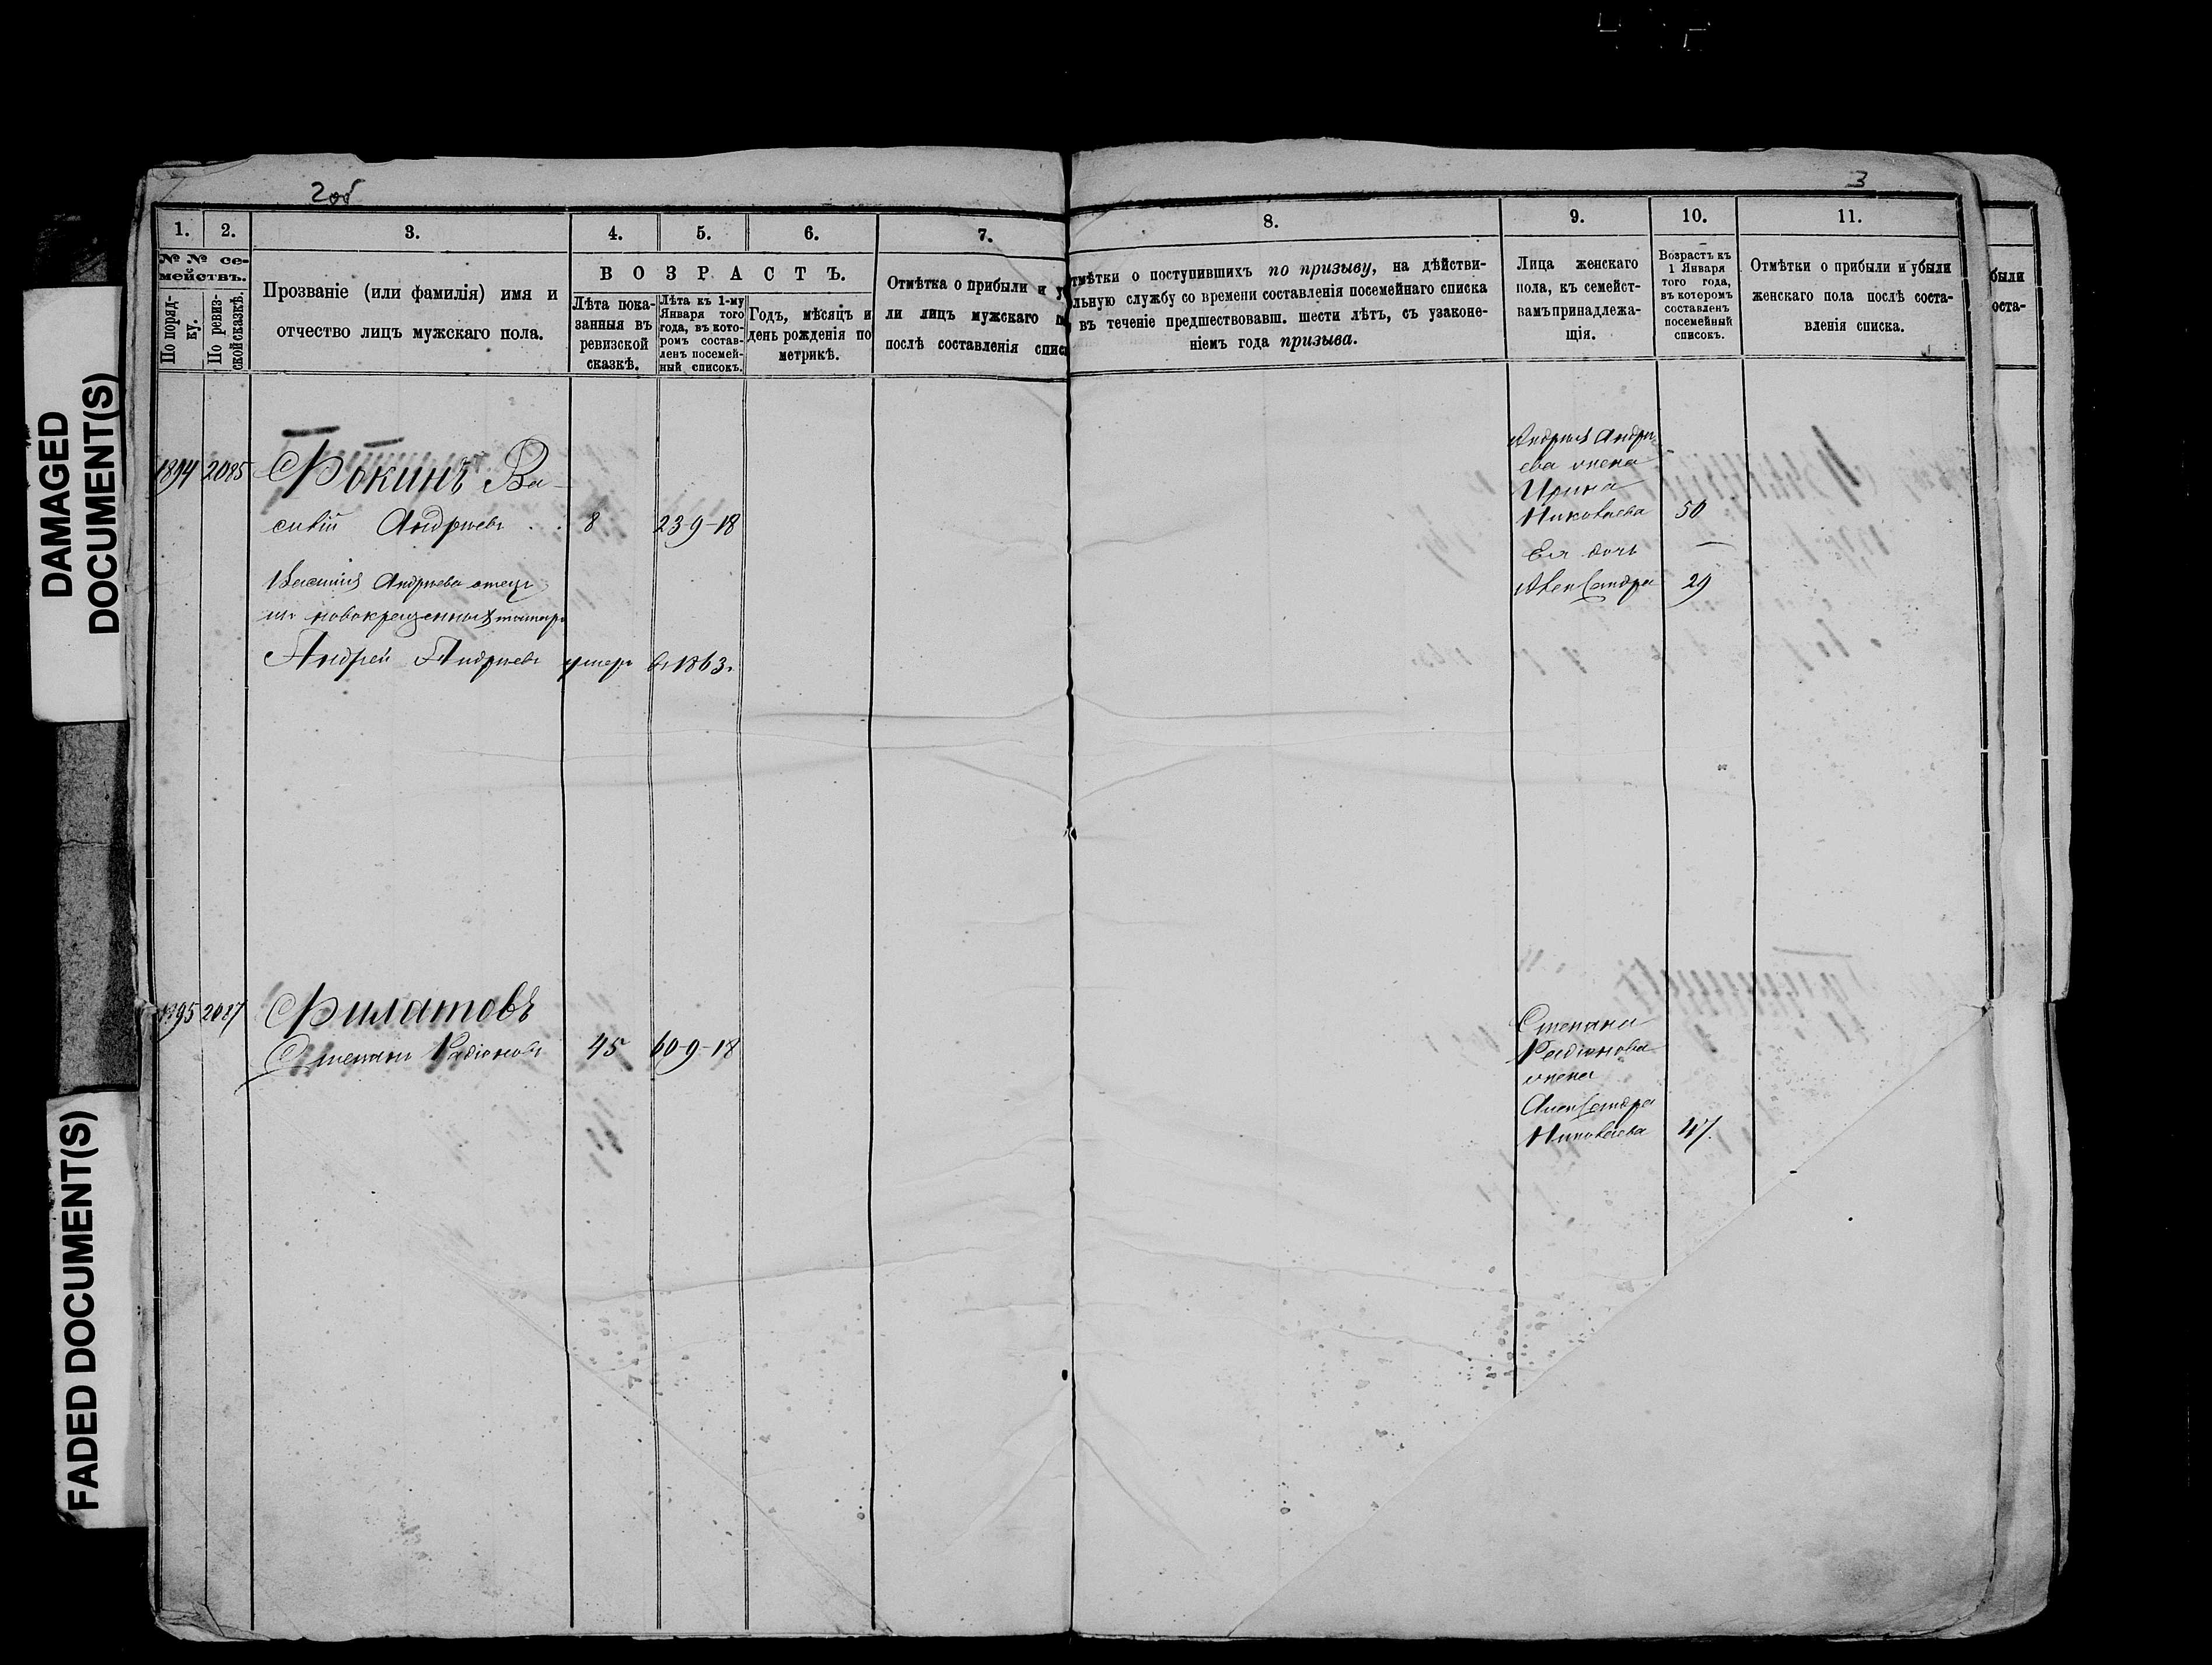 2об
3
1.
2.
3.
4.
5.
6.
7.
8.
9.
10.
11.
№ № се-
мействъ.
По поряд-
ку.
По ревиз-
ской сказкѣ.
Прозваніе (или фамилія) имя и
отчество лицъ мужскаго пола.
ВОЗРАСТЪ.
Лѣта пока-
занныя въ
ревизской
сказкѣ.
Лѣта къ 1-му
Января того
года, въ кото-
ромъ состав-
ленъ посемей-
ный списокъ.
Годъ, мѣсяцъ и
день рожденія по
метрикѣ.
Отмѣтка о прибыли и у
ли лицъ мужскаго
послѣ составленія спис
тмѣтки о поступившихъ по призыву, на дѣйстви-
льную службу со времени составленія посемейнаго списка
въ теченіе предшествовавш. шести лѣтъ, съ узаконе-
ніемъ года призыва.
Лица женскаго
пола, къ семейст-
вамъ принадлежа-
щія.
Возрастъ къ
1 Января
того года,
въ которомъ
составленъ
посемейный
списокъ.
Отмѣтки о прибыли и убыли
женскаго пола послѣ соста-
вленія списка.
были
оста-
1894 2085 Фокинъ Ва-
силій Андреевъ 8 23-9-18
Василія Андреева отецъ
изъ новокрещенныхъ татаръ
Андрей Андреевъ умеръ въ 1863.
Андрея Андре-
ева жена
Ирина
Николаева 50
Ея дочь
Александра 29
1895 2087 Филатовъ
Степанъ Радіоновъ 45 60-9-18
Степана
Радіонова
жена
Александра
Николаева 47.
DAMAGED
DOCUMENT(S)
FADED DOCUMENT(S)